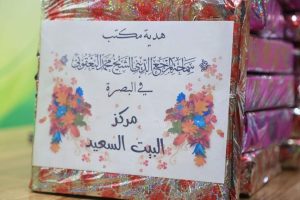 هدية مكتب
سماحة المرجع الديني الشيخ محمد اليعقوبي
في البصرة
مركز
البيت السعيد